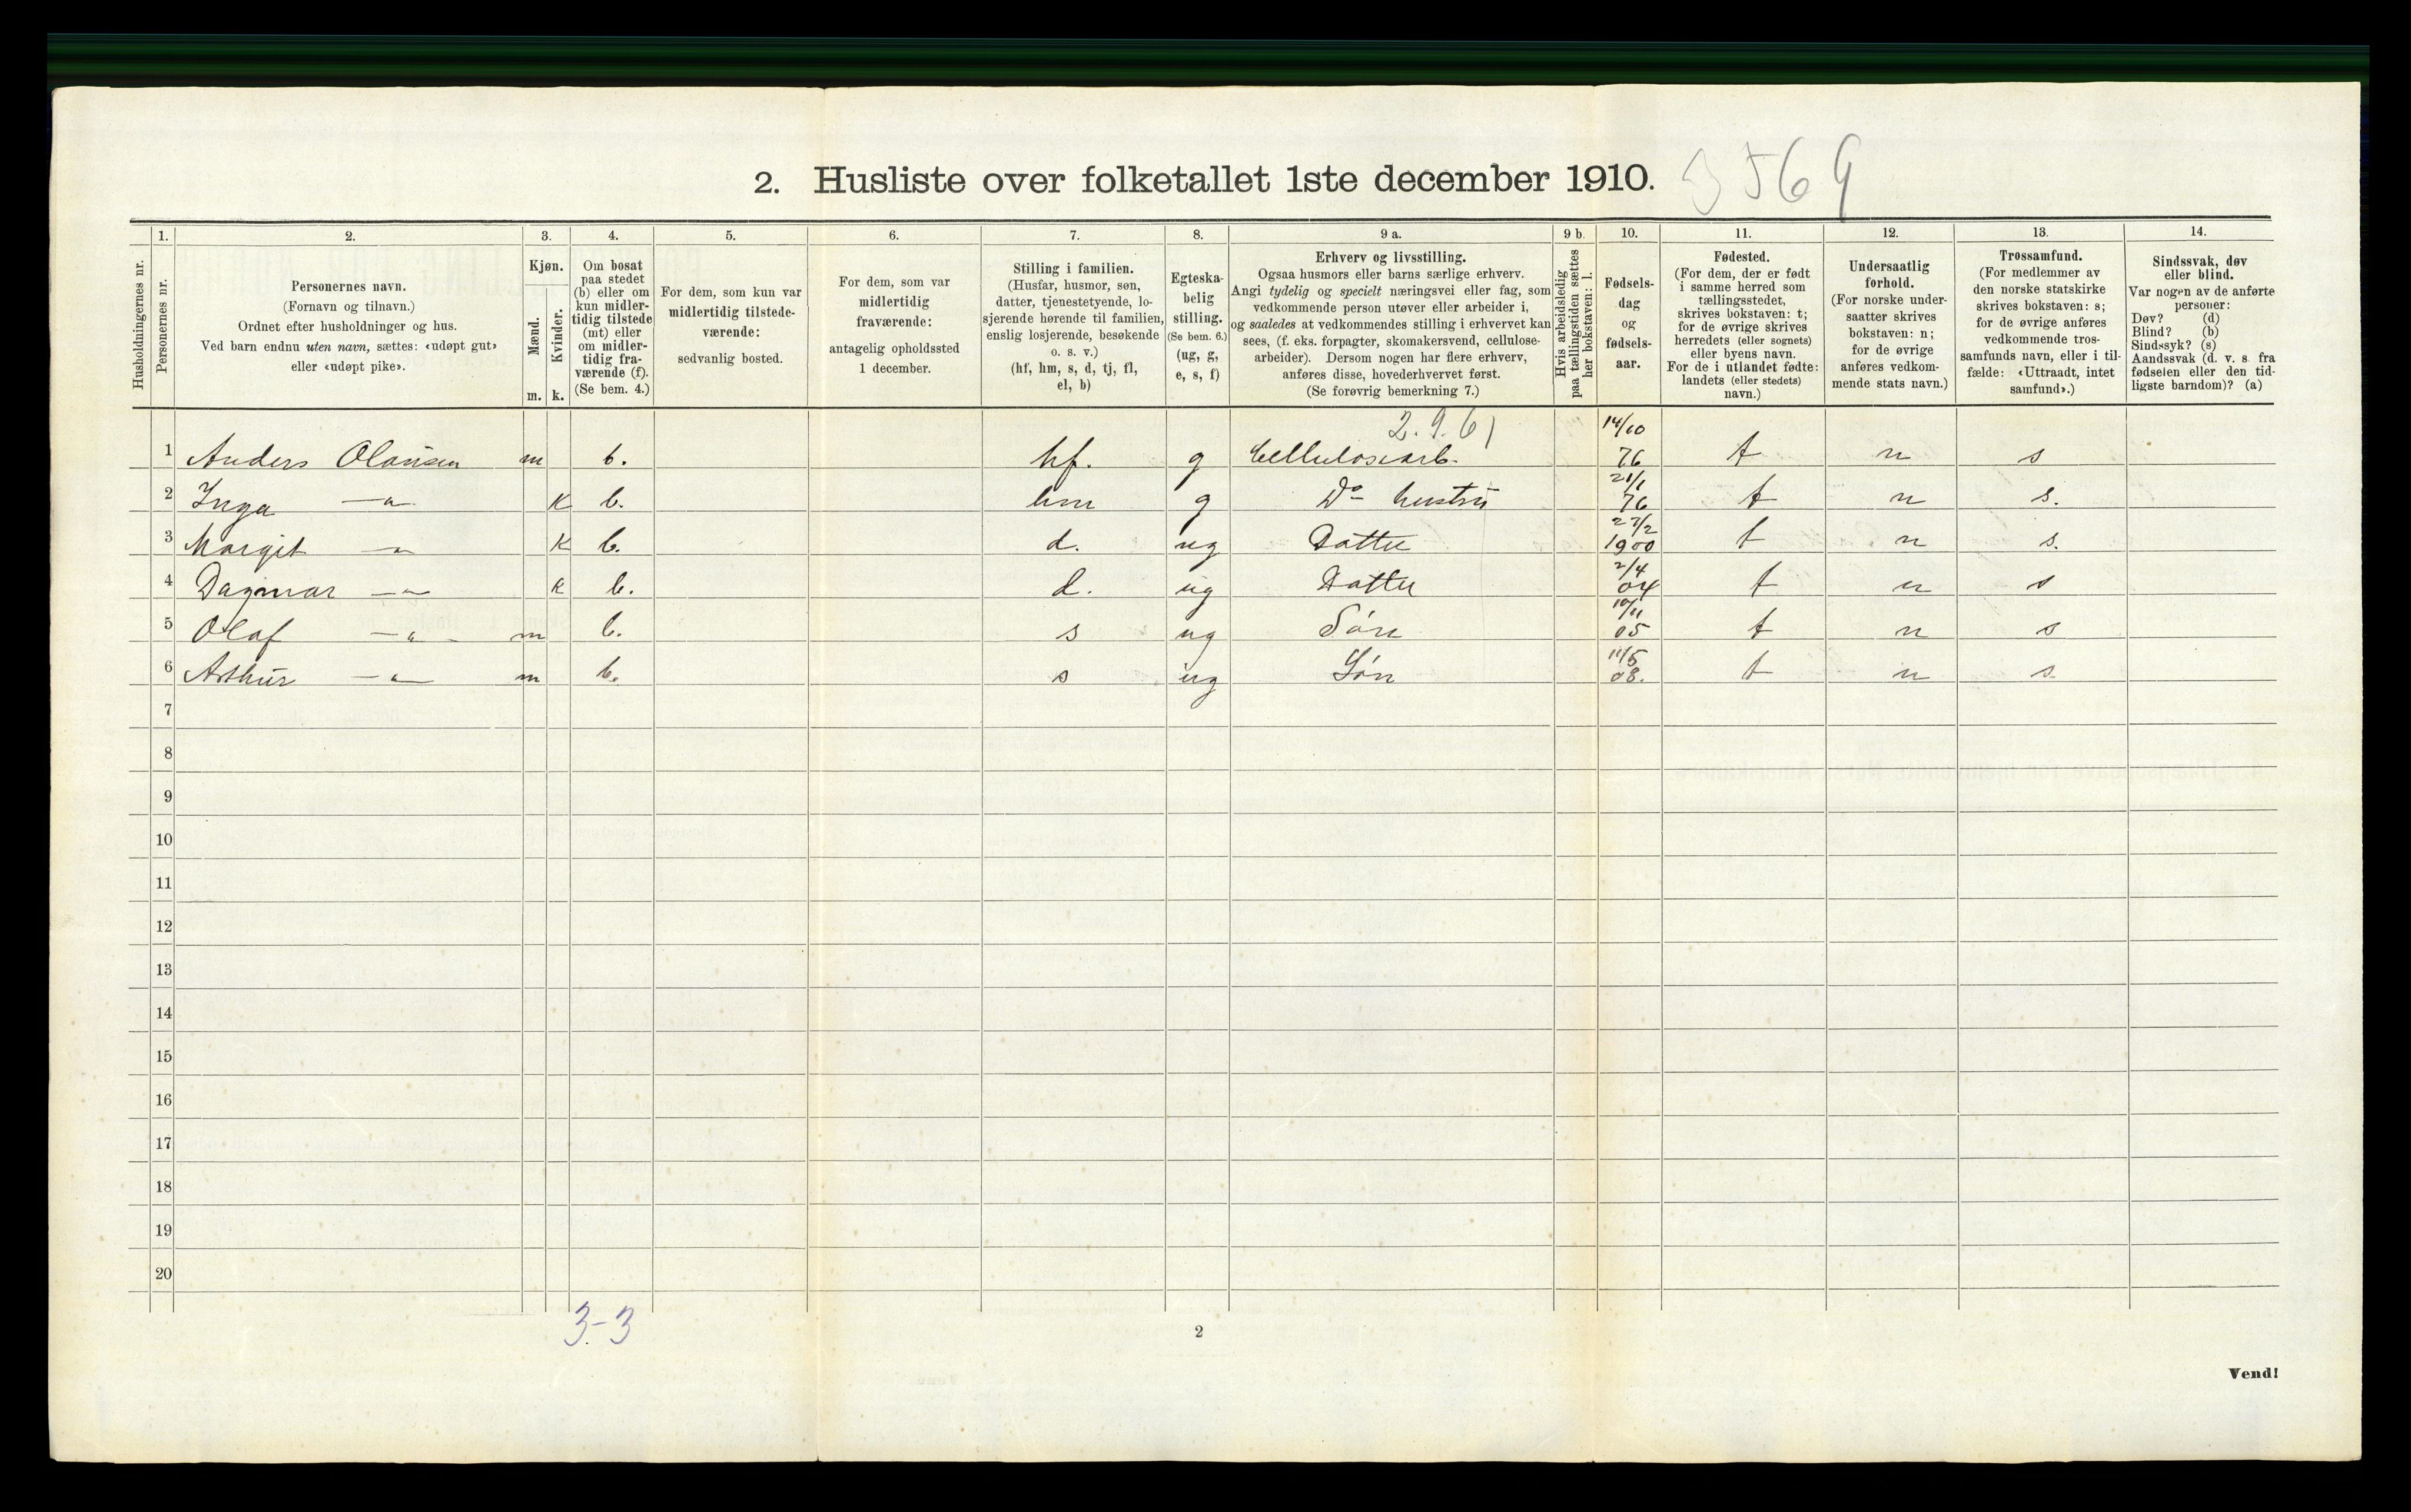 2. Husliste over folketallet 1ste december 1910. 3569
Husholdningernes nr.
1.
Personernes nr.
2.
Personernes navn.
(Fornavn og tilnavn.)
Ordnet efter husholdninger og hus.
Ved barn endnu uten navn, sættes: «udøpt gut»
eller «udøpt pike».
3.
Kjøn.
Mænd.
Kvinder.
m. k.
4.
Om bosat
paa stedet
(b) eller om
kun midler-
tidig tilstede
(mt) eller
om midler-
tidig fra-
værende (f).
(Se bem. 4.)
5.
For dem, som kun var
midlertidig tilstede-
værende:
sedvanlig bosted.
6.
For dem, som var
midlertidig
fraværende:
antagelig opholdssted
1 december.
7.
Stilling i familien.
(Husfar, husmor, søn,
datter, tjenestetyende, lo-
sjerende hørende til familien,
enslig losjerende, besøkende
o. s. v.)
(hf, hm, s, d, tj, fl,
el, b)
8.
Egteska-
belig
stilling.
(Se bem. 6.)
(ug, g,
e, s, f)
9 a.
Erhverv og livsstilling.
Ogsaa husmors eller barns særlige erhverv.
Angi tydelig og specielt næringsvei eller fag, som
vedkommende person utøver eller arbeider i,
og saaledes at vedkommendes stilling i erhvervet kan
sees, (f. eks. forpagter, skomakersvend, cellulose-
arbeider). Dersom nogen har flere erhverv,
anføres disse, hovederhvervet først.
(Se forøvrig bemerkning 7.)
9 b.
Hvis arbeidsledig
paa tællingstiden sættes
her bokstaven: l.
10.
Fødsels-
dag
og
fødsels-
aar.
11.
Fødested.
(For dem, der er født
i samme herred som
tællingsstedet,
skrives bokstaven: t;
for de øvrige skrives
herredets (eller sognets)
eller byens navn.
For de i utlandet fødte:
landets (eller stedets)
navn.)
12.
Undersaatlig
forhold.
(For norske under-
saatter skrives
bokstaven: n;
for de øvrige
anføres vedkom-
mende stats navn.)
13.
Trossamfund.
(For medlemmer av
den norske statskirke
skrives bokstaven: s;
for de øvrige anføres
vedkommende tros-
samfunds navn, eller i til-
fælde: «Uttraadt, intet
samfund».)
14.
Sindssvak, døv
eller blind.
Var nogen av de anførte
personer:
Døv? (d)
Blind? (b)
Sindssyk? (s)
Aandssvak (d. v. s. fra
fødselen eller den tid-
ligste barndom)? (a)
2.9.61
1 Anders Olausen m b. hf. g Cellulosearb. 14/10 76 t n s
2 Inga —"— K b. hm g Do hustru 21/1 76 t n s.
3 Margit —"— K b. d. ug Datter 27/2 1900 t n s.
4 Dagmar —"— K b. d. ug Datter 2/4 04 t n s
5 Olaf —"— m b. s ug Søn 10/11 05 t n s
6 Arthur —"— m b. s ug Søn 11/5 08. t n s.
7
8
9
10
11
12
13
14
15
16
17
18
19
20
3-3
2
Vend!